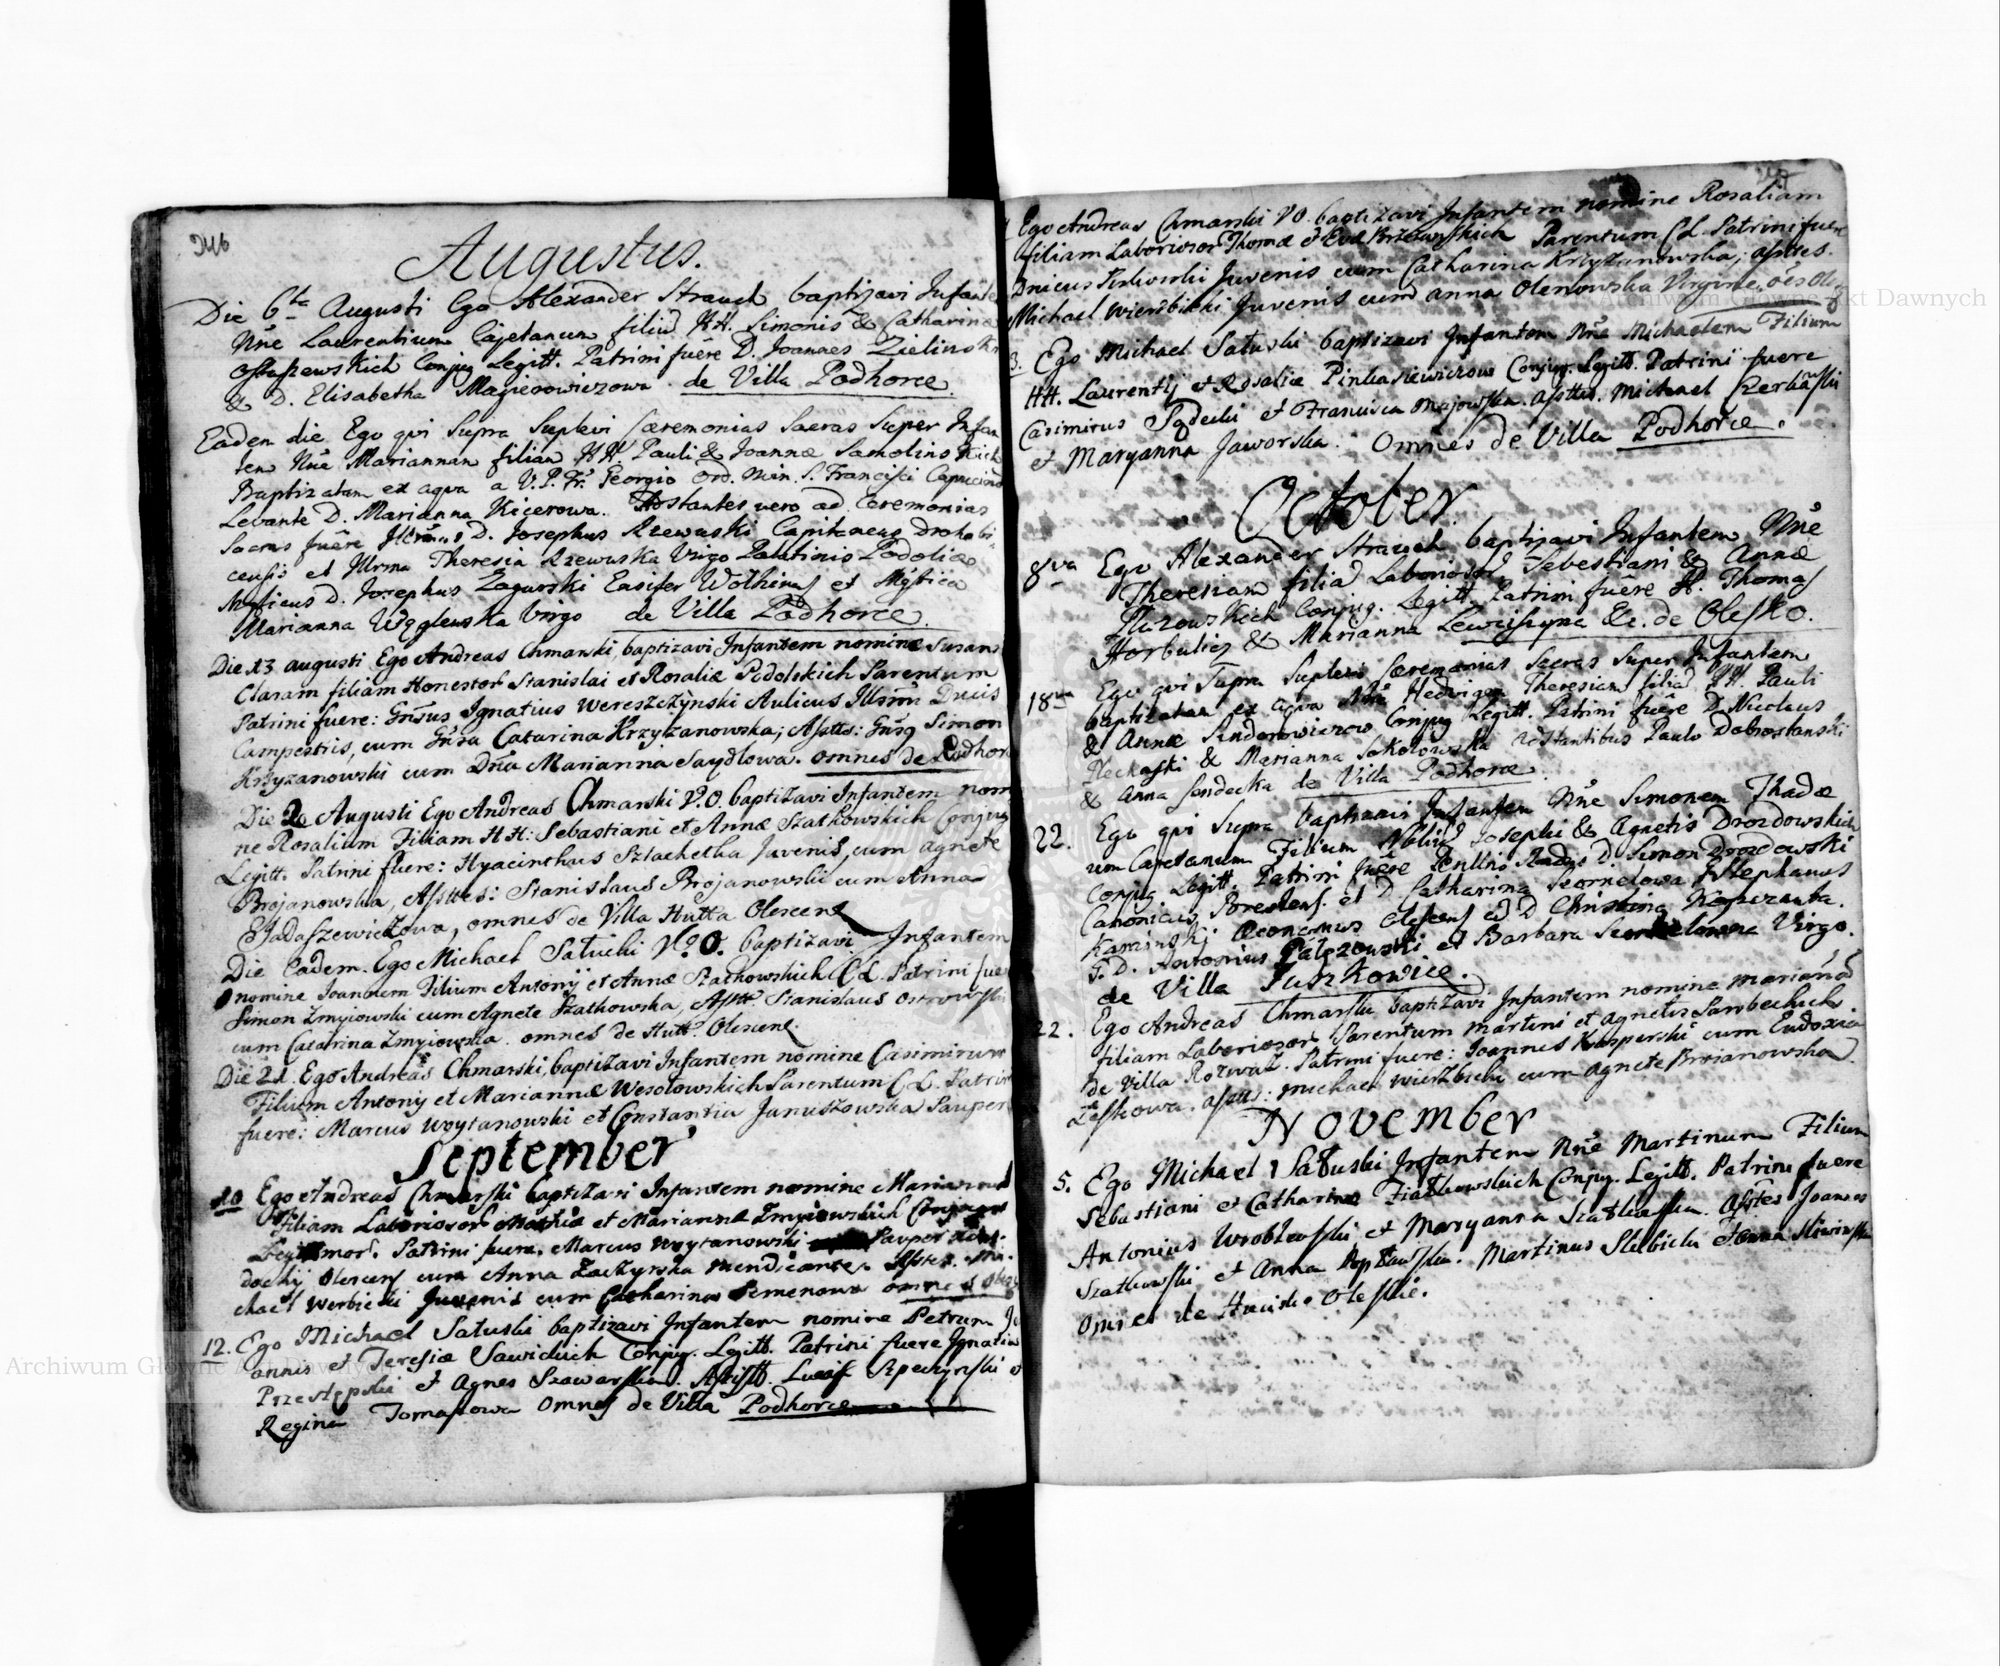 246
Augustus.
Die 6ta Augusti Ego Alexander Strauch baptisavi Infante
Nñe Laurentium Cajetanum filiũ HH. Simonis & Catharinæ
Ostaszewskich Conjug Legitt. Patrini fuêre D. Joannes Zielinski
& D. Elisabetha Magierowiczowa de Villa Podhorce
Eadem die Ego qvi Supra Suplevi Cæremonias Sacras Super Infan
tem Nñe Mariannam filiam HH Pauli & Joannæ Samolinskich
Baptizatam ex aqva a V.P. Fr. Georgio Ord. Min. S. Francisci Capucinõ
Levante D. Marianna Kicerowa. Astantes vero ad Ceremonias
Sacras fuêre D. Josephus Rzewuski Capitaneus Drohobi
censis et Illrma Theresia Rzewuska Virgo Palatinis Podoliæ
Mysticus D. Josephus Zagurski Ensifer Wolhinens et Mystica
Marianna Węglenska Virgo de Villa Podhorce.
Die 13 augusti Ego Andreas Chmarski, baptizavi Infantem nomine Susann
Claram filiam Honestor Stanislai et Rosaliæ Podolskich Parentum
Patrini fuere: Gñsus Ignatius Wereszczynski Aulicus Illsmi Ducis
Campestris, cum Gñsa Catarina Krzyżanowska; Assttes: Gñsg Simon
Krzyzanowski cum Dña Marianna Saydlowa. omnes de Podhor
Die 20 Augusti Ego Andreas Chmarski V.O. baptizavi Infantem nom
ne Rosaliam Filiam HH: Sebastiani et Annæ Szatkowskich Conjug
Legitt. Patrini fuere: Hyacinthus Szlachetka Juvenis, cum agnete
Brojanowska, Assttes: Stanislaus Brojanowski cum Anna
Jadaszewiczowa, omnes de Villa Hutta Olescens
Die Eadem. Ego Michael Satuski V.O. baptizavi Infantem
nomine Joannem Filium Antonij et Annæ Szatkowskich CL. Patrini fue
Simon Zmyiowski cum Agnete Szatkowska, Asstt Stanislaus Ostrowski
cum Catarina Zmyiowska. omnes de Hutt Olescens
Die 21. Ego Andreas Chmarski, baptizavi Infantem nomine Casimirum
Filium Antonij et Mariannæ Wesołowskich Parentum CL. Patrin
fuere: Marcus Woytanowski et Constantia Januszowska Pauper
September
10 Ego Andreas Chmarski baptizavi Infantem nomine Mariannam
Filiam Laboriosor Mathiæ et Mariannæ Zmyiowskich Conjugum
Legittimor. Patrini fuere. Marcus Woytanowski Pauper
dochij Olescens cum Anna Zaczyńska mendicantes. Asstes. Mi
chael Werbicki Juvenis cum Catharina Semenowa omnes Oles
12. Ego Michael Satuski baptizavi Infantem nomine Petrum Jo
annis et Teresiæ Sawickich Conjug. Legitt. Patrini fuere Ignatius
Przestępski et Agnes Szawarska. Assistt. Lucas Szpechynski e
Regina Tomaszowa Omnes de Villa Podhorce
Ego Andreas Chmarski V.O. baptizavi Infantem nomine Rosaliam
filiam Laboriosor Thomæ et Evæ Parentum CL Patrini fuer
Juvenis cum Catharina Krzyżanowska; asstes.
Michael Wierzbicki Juvenis cum anna Olenowska Virgine, oēs Ole
3. Ego Michael Satuski baptizavi Infantem Nñe Michaelem Filium
HH. Laurentij et Rosaliæ Pinkasiewiczow Conjug. Legitt. Patrini fuere
Casimirus Sądecki et Francisca Majowska. Assttes. Michael
et Maryanna Jaworska. Omnes de Villa Podhorce.
October
8va Ego Alexander Strauch baptisavi Infantem Nñe
Theresiam filiã Laboriosor Sebestiani & Annæ
Conjug. Legitt. Patrini fuêre H. Thomas
Horbulicz & Marianna &c. de Olesko.
18va Ego qvi Supra Suplevi Cæremonias Sacras Super Infantem
baptizatam ex aqva Nñe Hedvigem Theresiam filiã HH. Pauli
& Annæ Conjug Legitt. Patrini fuêre D. Nicolaus
& Marianna Sokołowska Adstantibus Paulo Dobrostanski
& Anna Sendecka de Villa Podhorce
22. Ego qvi Supra baptisavi Infantem Nñe Simonem Thadæ
um Cajetanum Filium Nobiliũ Josephi & Agnetis Drozdowskich
Conjug Legitt. Patrini fuêre D. Simon Drozdowski
Canonicus et D Catharina Skornelowa Stephanus
Kaminski Olescens cũ D Christina
G. D. Antonius et Barbara Virgo.
de Villa Juszkowice.
22. Ego Andreas Chmarski baptizavi Infantem nomine mariañã
filiam Laboriosor Parentum martini et agnetis Sambeckich
de Villa Rozważ. Patrini fuere: Joannes Kasperski cum Eudoxia
Zaskowa. asstts: michael Wierzbicki cum agnete Broianowska.
November
5. Ego Michael Satuski Infantem Nñe Martinum Filium
Sebastiani et Catharinæ Fiatkowskich Conjug. Legitt. Patrini fuere
Antonius Wroblewski et Maryanna Szatkoska. Asstes Joannes
Szatkowski et Anna Martinus Slebicki et Anna
Omnes de Hucisko Oleskie.
Archiwum Główne Akt Dawnych
Archiwum Główne Akt Dawnych